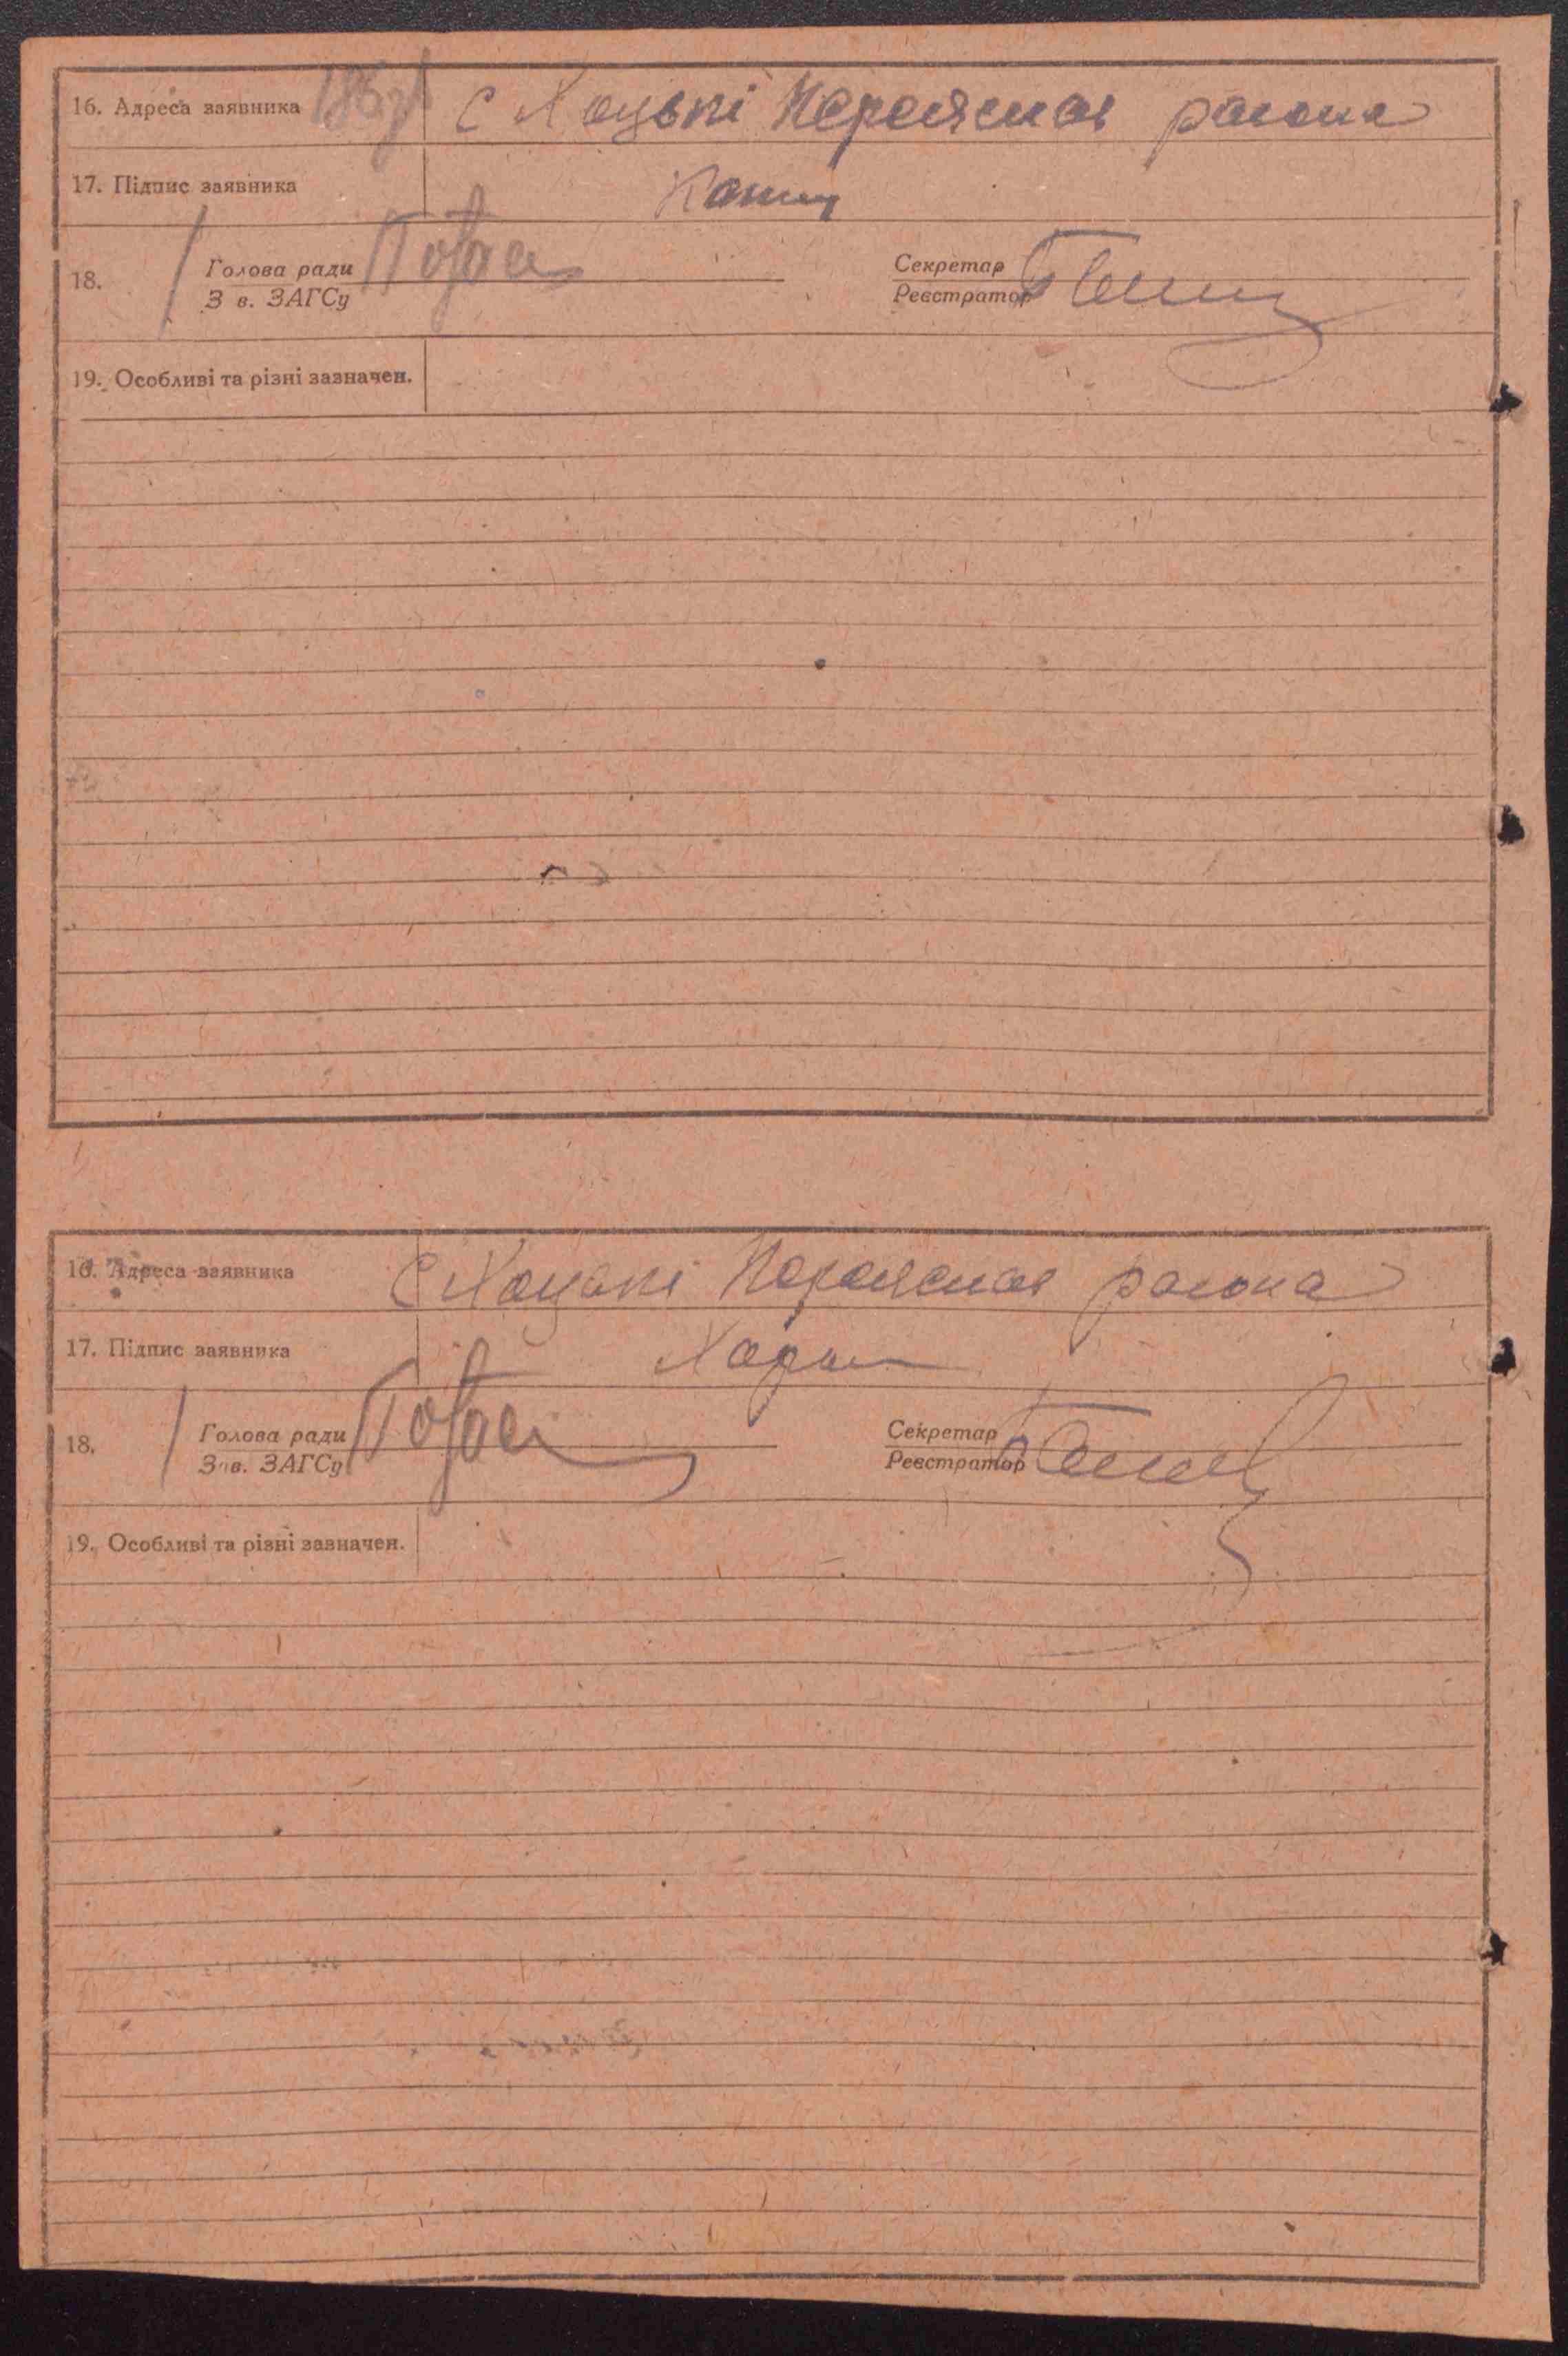 16. Адреса заявника 186зв С Хоцькі Переясслав района
17. Підпис заявника
18. Голова ради Секретар
З в. ЗАГСу Реєстратор
19. Особливі та різні зазначен.
16. Адреса заявника С Хоцькі Переяслав района
17. Підпис заявника
18. Голова ради Секретар
Зав. ЗАГСу Реєстратор
19. Особливі та різні зазначен.